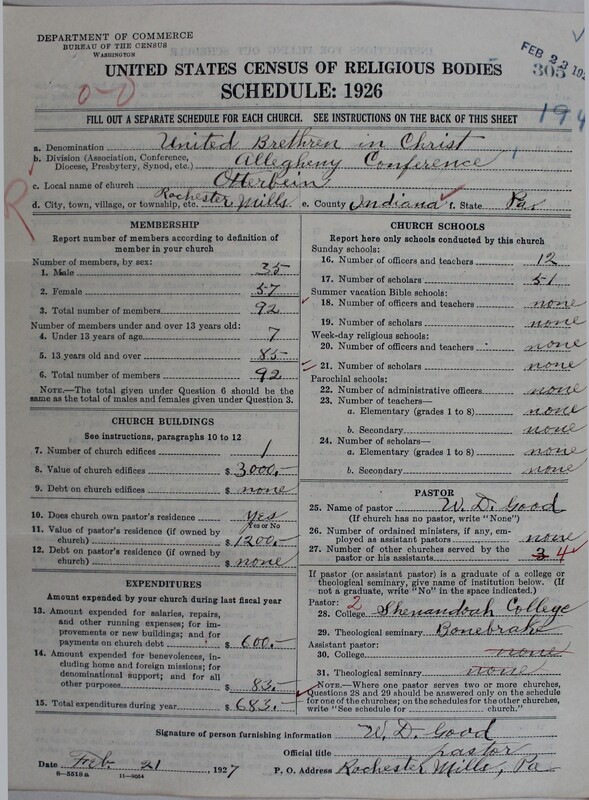 DEPARTMENT OF COMMERCE
BUREAU OF THE CENSUS
WASHINGTON
FEB 23 192
305
UNITED STATES CENSUS OF RELIGIOUS BODIES
0-0
SCHEDULE: 1926
194
FILL OUT A SEPARATE SCHEDULE FOR EACH CHURCH. SEE INSTRUCTIONS ON THE BACK OF THIS SHEET
a. Denomination United Brethren in Christ
b. Division (Association, Conference, Diocese, Presbytery, Synod, etc.) Allegheny Conference
c. Local name of church Otterbein
R
d. City, town, village, or township, etc. Rochester Mills e. County Indiana f. State Pa.
MEMBERSHIP
Report number of members according to definition of
member in your church
Number of members, by sex:
1. Male 35
2. Female 57
3. Total number of members 92
Number of members under and over 13 years old:
4. Under 13 years of age 7
5. 13 years old and over 85
6. Total number of members 92
NOTE.—The total given under Question 6 should be
same as the total of males and females given under Question 3.
CHURCH BUILDINGS
See instructions, paragraphs 10 to 12
7. Number of church edifices 1
8. Value of church edifices $ 3000.-
9. Debt on church edifices $ none
10. Does church own pastor's residence Yes
Yes or No
11. Value of pastor's residence (if owned by
church) $ 1200.-
12. Debt on pastor's residence (if owned by
church) $ none
EXPENDITURES
Amount expended by your church during last fiscal year
13. Amount expended for salaries, repairs,
and other running expenses; for im-
provements or new buildings; and for
payments on church debt $ 600.-
14. Amount expended for benevolences, in-
cluding home and foreign missions; for
denominational support; and for all
other purposes $ 83.-
15. Total expenditures during year $ 683.-
CHURCH SCHOOLS
Report here only schools conducted by this church
Sunday schools:
16. Number of officers and teachers 12
17. Number of scholars 51
Summer vacation Bible schools:
18. Number of officers and teachers none
19. Number of scholars none
Week-day religious schools:
20. Number of officers and teachers none
21. Number of scholars none
Parochial schools:
22. Number of administrative officers none
23. Number of teachers—
a. Elementary (grades 1 to 8) none
b. Secondary none
24. Number of scholars—
a. Elementary (grades 1 to 8) none
b. Secondary none
PASTOR
25. Name of pastor W. D. Good
(If church has no pastor, write "None")
26. Number of ordained ministers, if any, em-
ployed as assistant pastors none
27. Number of other churches served by the
pastor or his assistants 3 4
If pastor (or assistant pastor) is a graduate of a college or
theological seminary, give name of institution below. (If
not a graduate, write "No" in the space indicated.)
Pastor: 2
28. College Shenandoah College
29. Theological seminary Bonebrake
Assistant pastor:
30. College none
31. Theological seminary none
NOTE.—Where one pastor serves two or more churches,
Questions 28 and 29 should be answered only on the schedule
for one of the churches; on the schedules for the other churches,
write "See schedule for church."
Signature of person furnishing information W. D. Good
Official title pastor
Date Feb. 21, 1927 P. O. Address Rochester Mills, Pa
8-5518a 11-9054